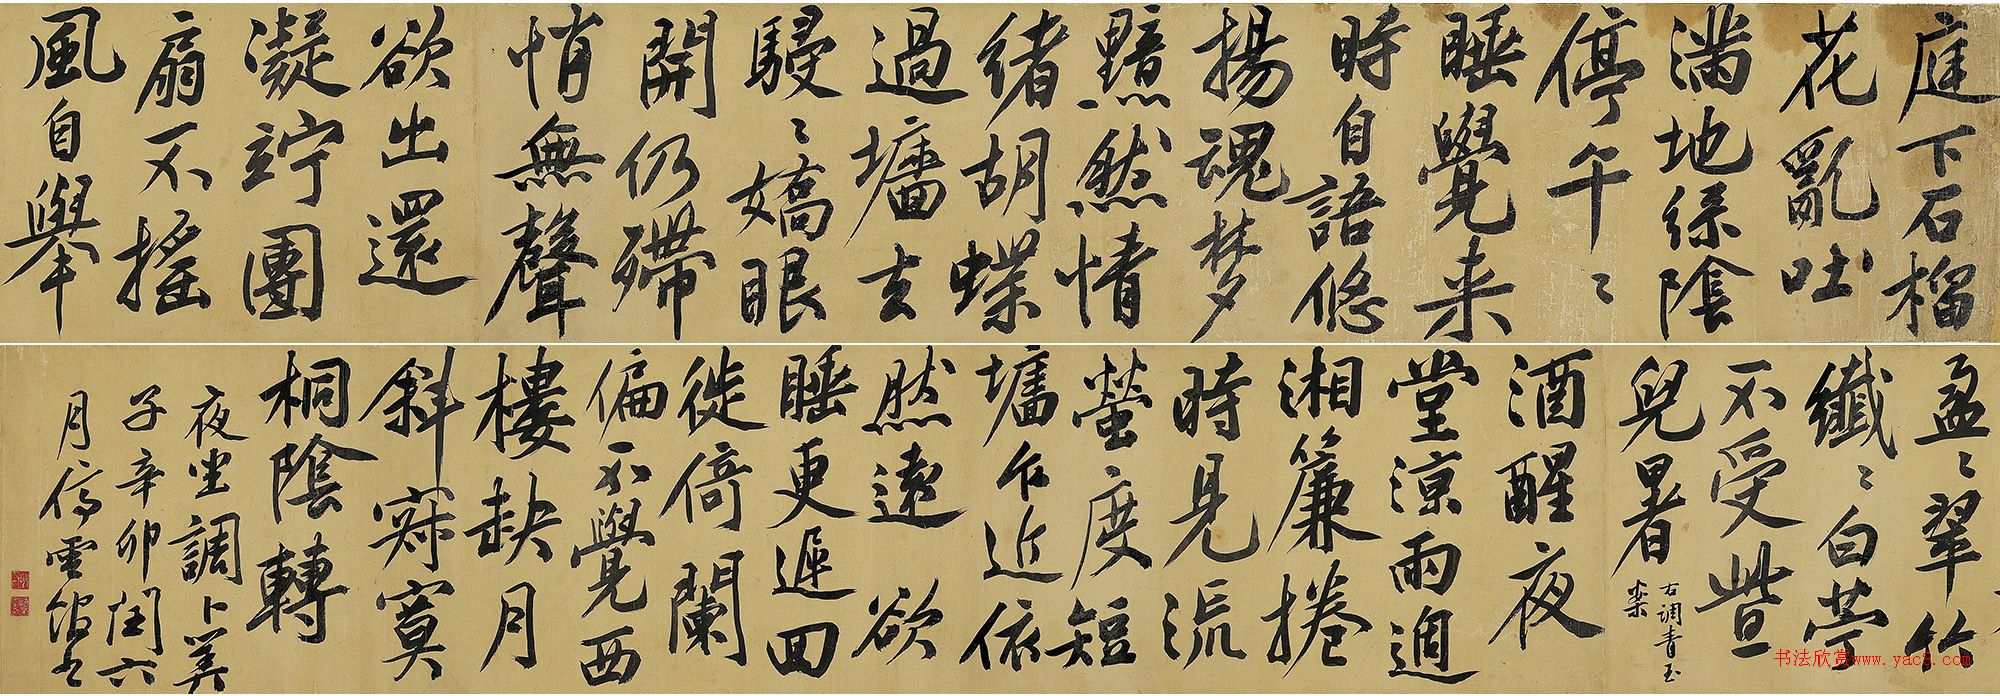 庭下石榴
花亂吐
滿地綠陰
停午〻
睡覺来
時自語悠
揚魂梦
黯然情
緒胡蝶
過墻去
駸〻嬌眼
開仍殢
悄無聲
欲出還
凝竚團
扇不搖
風自舉
盈〻翠竹
纖〻白苧
不受些
兒暑
右調青玉
案
酒醒夜
堂涼雨過
湘簾捲
時見流
螢度短
墻乍近依
然遠欲
睡更遲回
徙倚闌
偏不覺西
樓缺月
斜寂寞
桐陰轉
夜坐調卜筭
子辛卯閏六
月停雲館書
书法欣赏www.yac8.com